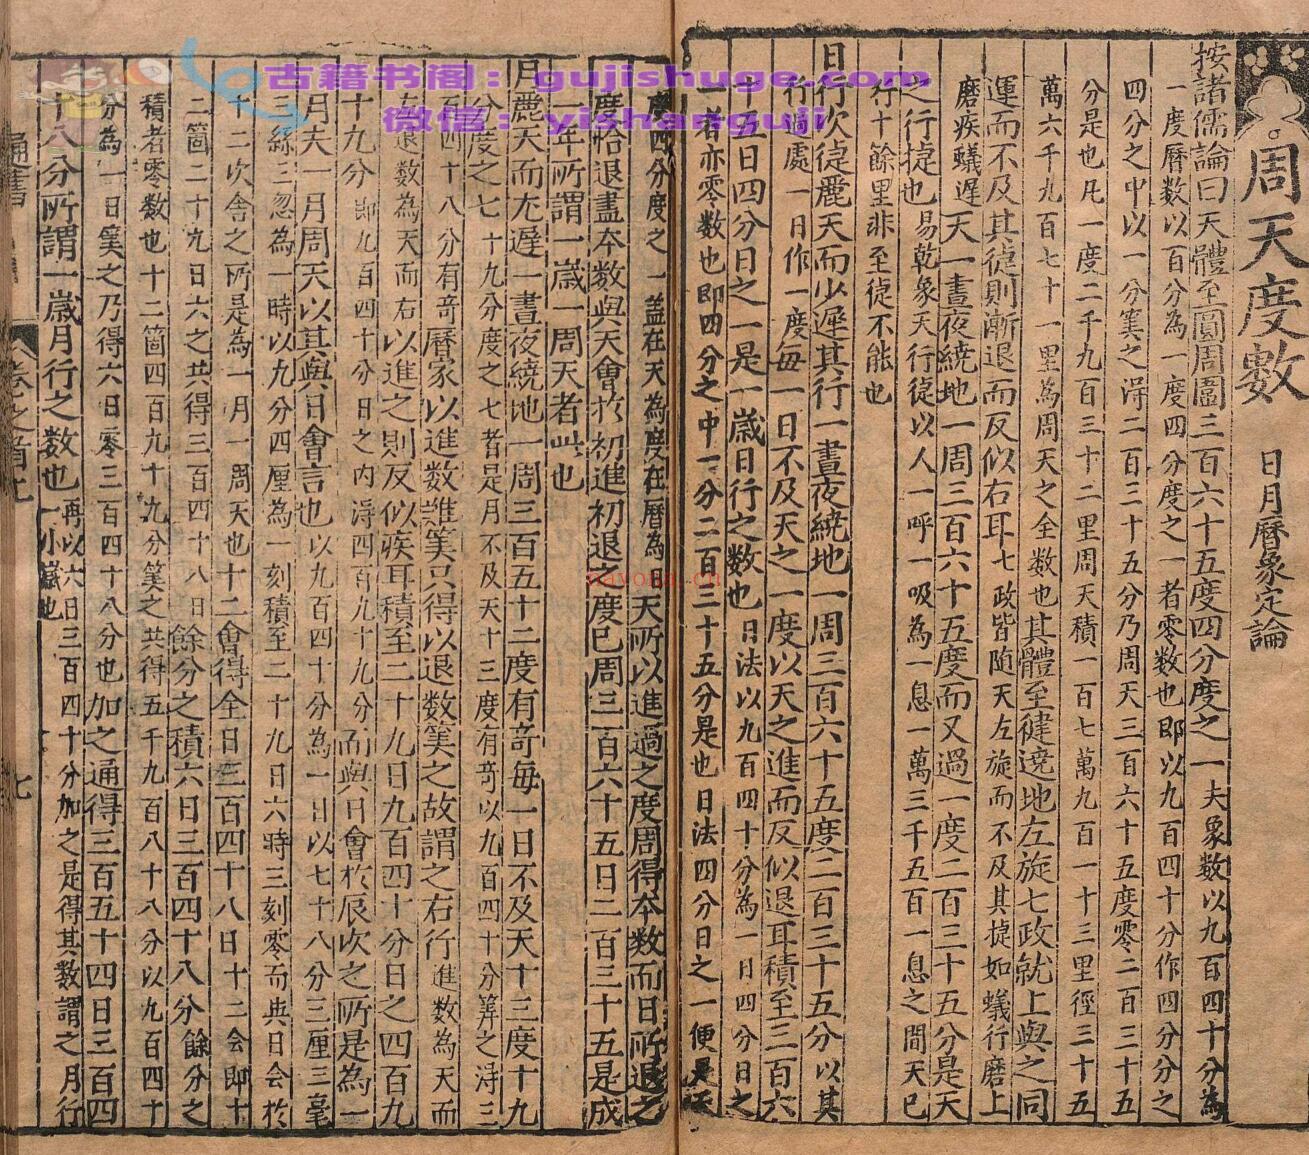 古籍书阁：gujishuge.com
微信：yishanguji
nayona.cn
周天度數　日月曆象定論
按諸儒論曰天體至圓周圍三百六十五度四分度之一夫象數以九百四十分為
一度曆數以百分為一度四分度之一者零數也即以九百四十分作四分分之
四分之中以一分筭之得二百三十五分乃周天三百六十五度零二百三十五
分是也凡一度二千九百三十二里周天積一百七萬九百一十三里徑三十五
萬六千九百七十一里為周天之全數也其體至徤遶地左旋七政就上與之同
運而不及其徤則漸退而反似右耳七政皆隨天左旋而不及其㨗如蟻行磨上
磨疾蟻遲天一晝夜繞地一周三百六十五度而又過一度二百三十五分是天
之行㨗也易乾象天行徤以人一呼一吸為一息一萬三千五百一息之間天已
行十餘里非至徤不能也
日行次徤麗天而少遲其行一晝夜繞地一周三百六十五度二百三十五分以其
行過處一日作一度每一日不及天之一度以天之進而反似退耳積至三百六
十五日四分日之一是一歲日行之數也日法以九百四十分為一日四分日之
一者亦零數也即四分之中一分二百三十五分是也日法四分日之一便是天
度四分度之一盖在天為度在曆為日天所以進過之度周得本數而日所退之
度恰退盡本數與天會於初進初退之度已周三百六十五日二百三十五是成
一年所謂一歲一周天者此也
月麗天而尤遲一晝夜繞地一周三百五十二度有奇每一日不及天十三度十九
分度之七十九分度之七者是月不及天十三度有奇以九百四十分筭之得三
百四十八分有奇曆家以進數難筭只得以退數筭之故謂之右行進數為天而
左退數為天而右以進之則反似疾耳積至二十九日九百四十分日之四百九
十九分即九百四十分日之內得四百九十九分而與日會於辰次之所是為一
月夫一月周天以其與日會言也以九百四十分為一日以七十八分三厘三毫
三絲三忽為一時以九分四厘為一刻積至二十九日六時三刻零而與日会於
十二次舍之所是為一月一周天也十二會得全日三百四十八日十二会即十
二箇二十九日六之共得三百四十八日餘分之積六日三百四十八分餘分之
積者零數也十二箇四百九十九分筭之共得五千九百八十八分以九百四十
分為一日筭之乃得六日零三百四十八分也加之通得三百五十四日三百四
十八分所謂一歲月行之數也一小歲也再以六日三百四十分加之是得其數謂之月行
通書
卷之首上
七